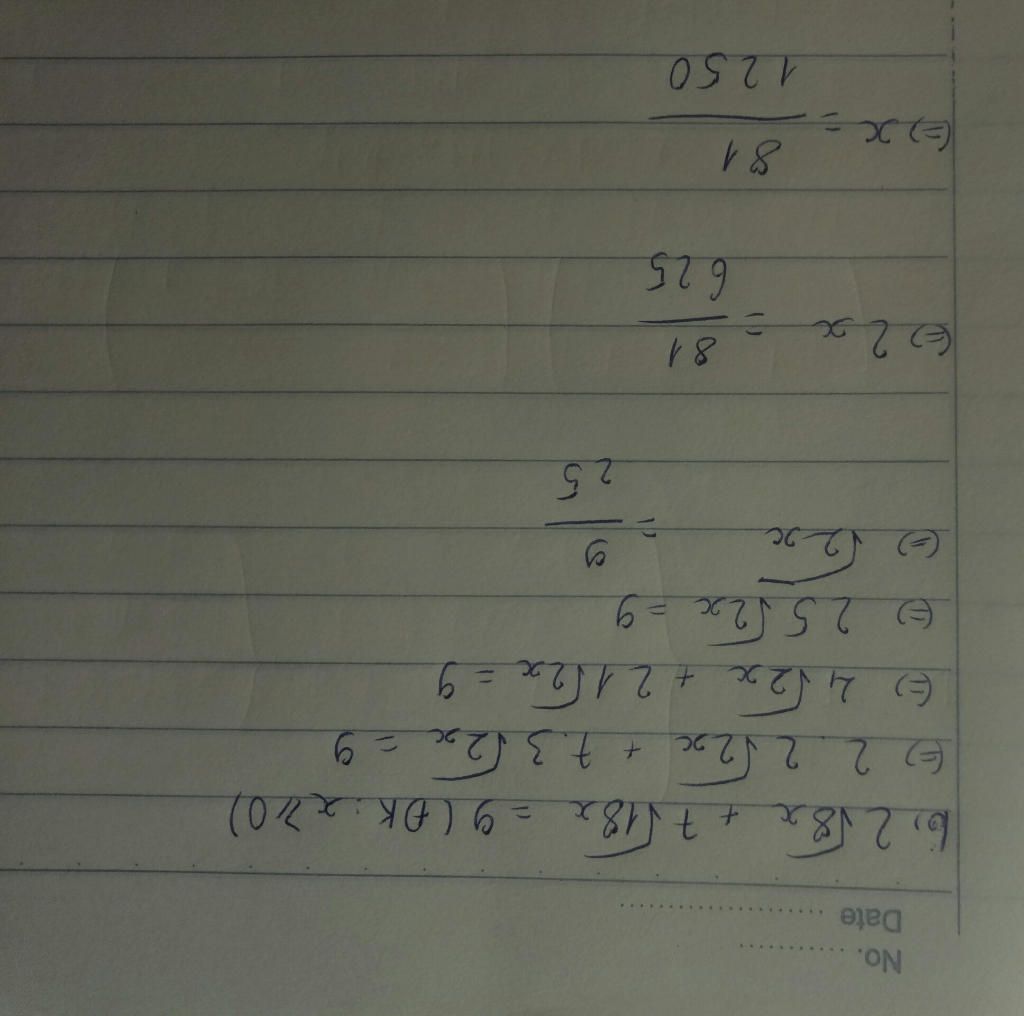 No. ...........
Date .....................
b, 2√8x + 7√18x = 9 (ĐK: x ⩾ 0)
(=) 2.2√2x + 7.3√2x = 9
(=) 4√2x + 21√2x = 9
(=) 25√2x = 9
(=) √2x = 9/25
(=) 2x = 81/625
(=) x = 81/1250